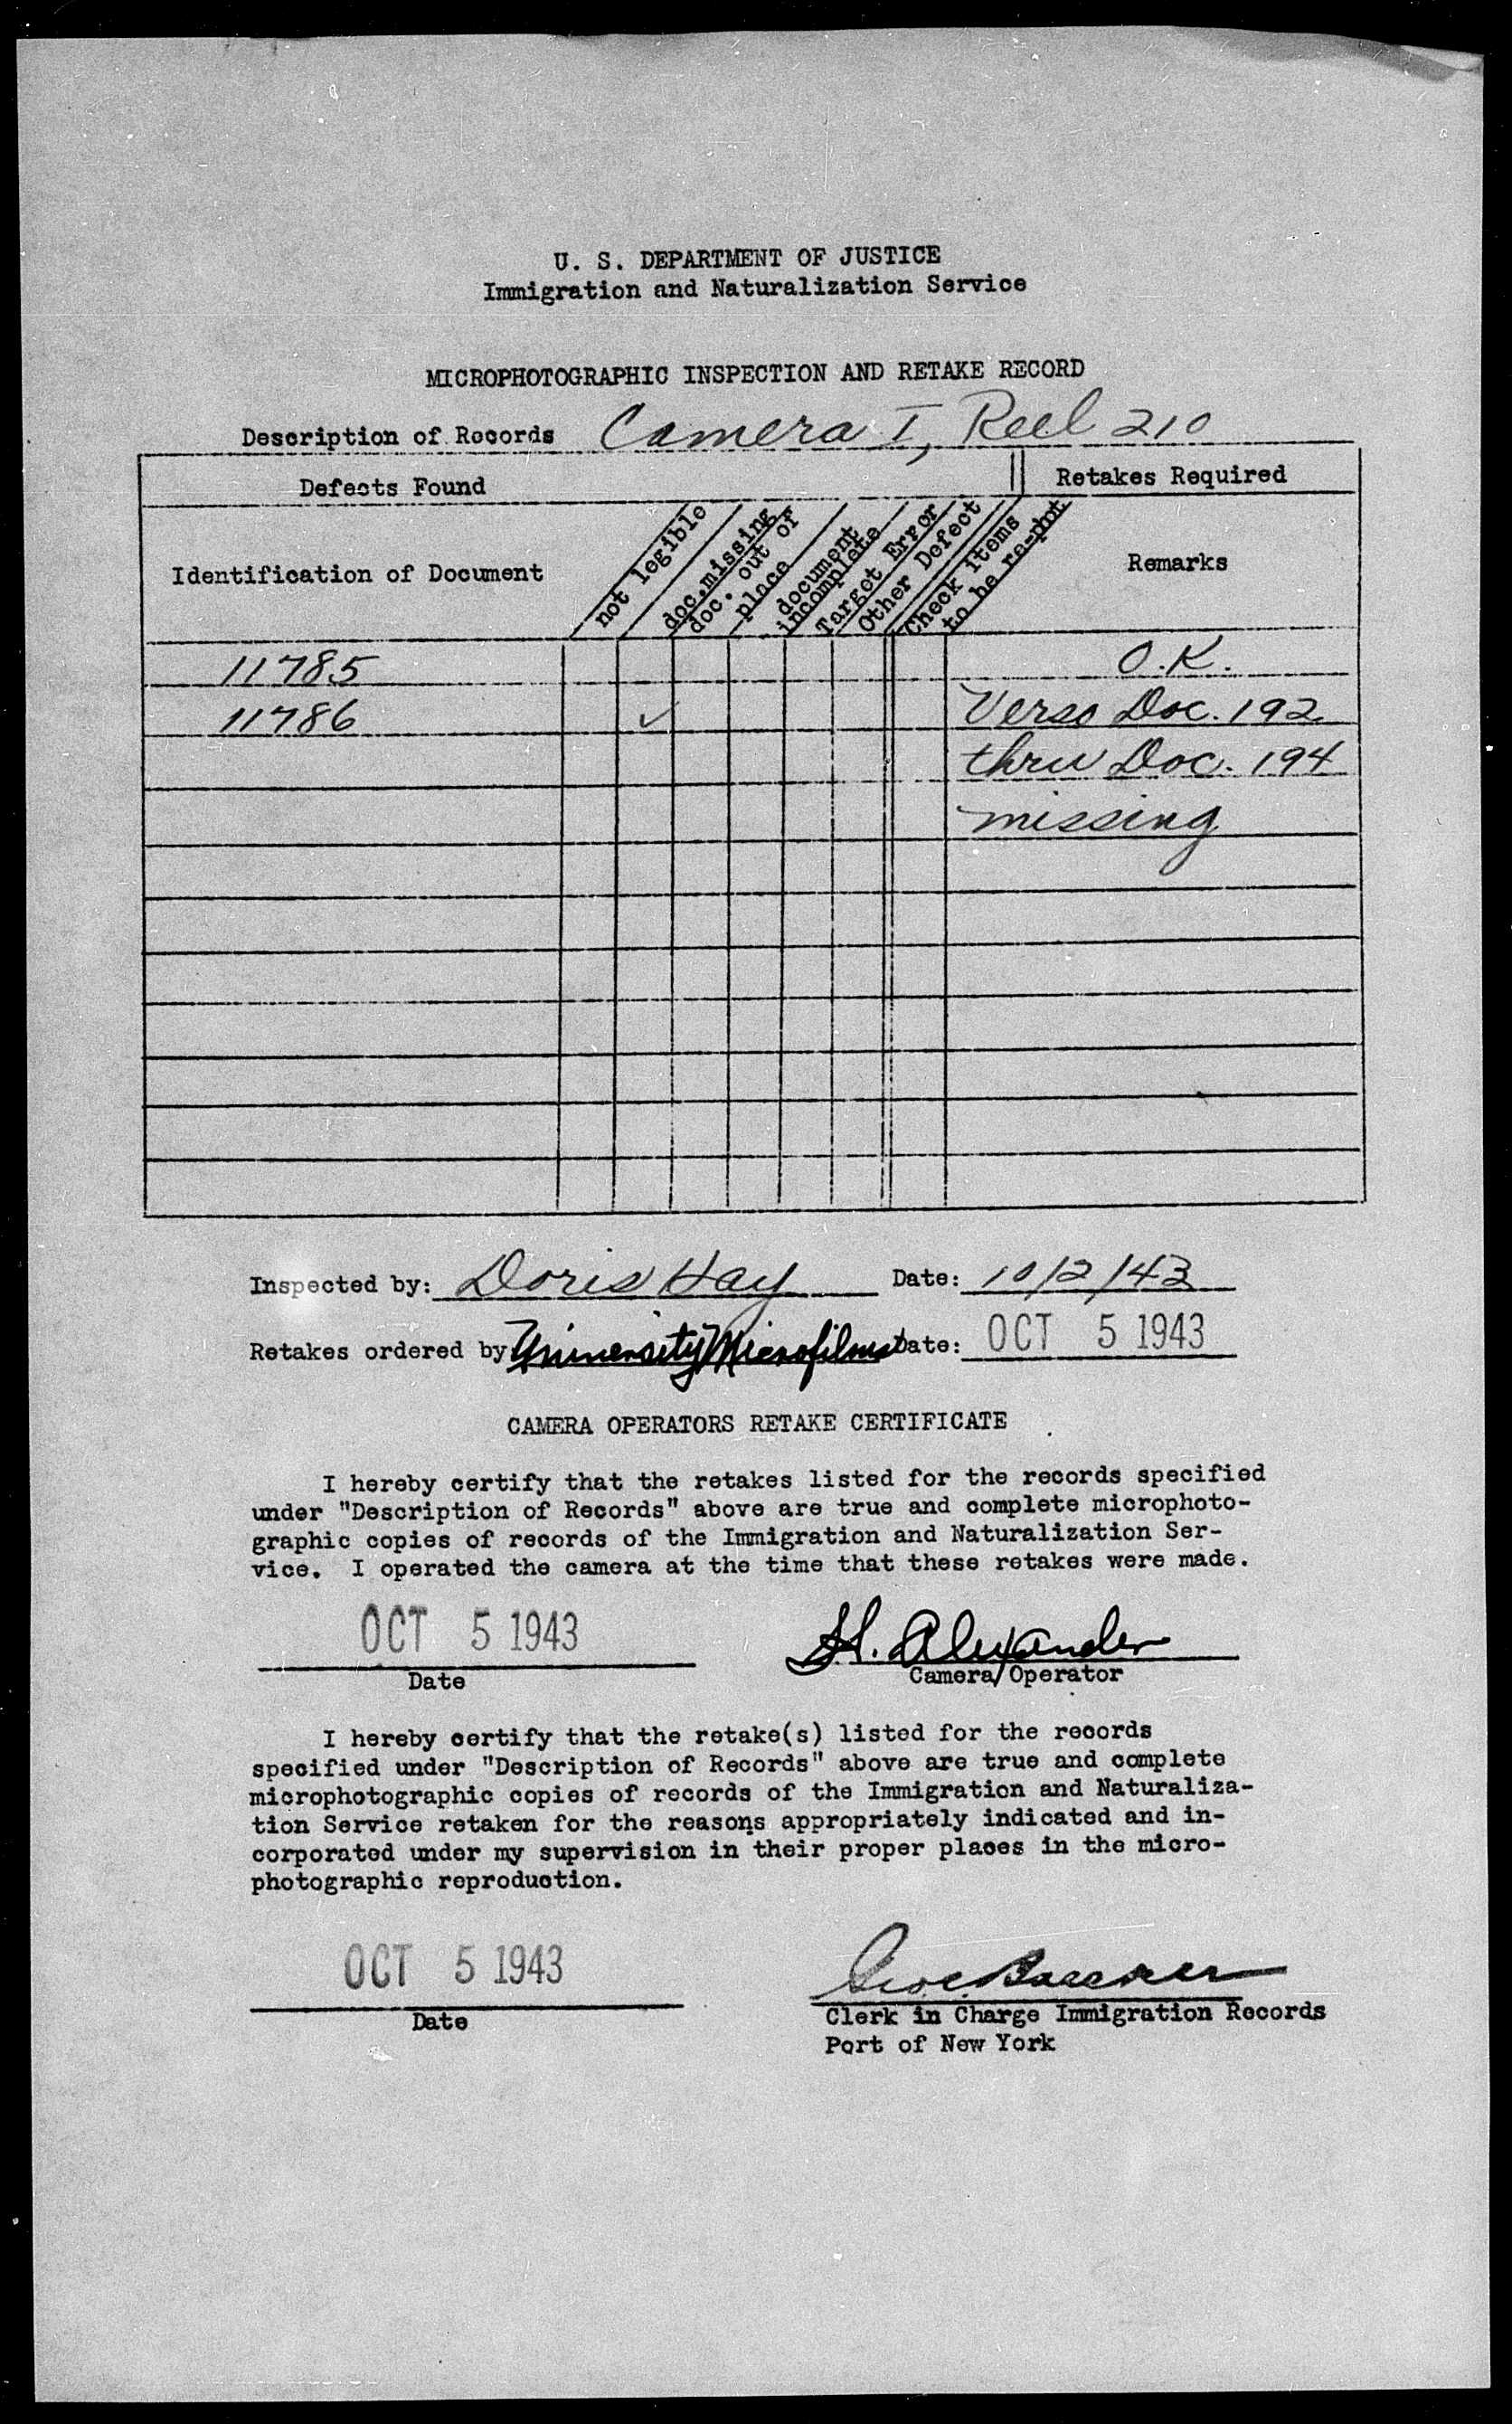 U. S. DEPARTMENT OF JUSTICE
Immigration and Naturalization Service
MICROPHOTOGRAPHIC INSPECTION AND RETAKE RECORD
Description of Records Camera I, Reel 210
Defects Found Retakes Required
Identification of Document
not legible
doc.missing
doc. out of
place
document
incomplete
Target Error
Other Defect
Check items
to be re-phot
Remarks
11785 O.K.
11786 ✓ Verso Doc. 192
thru Doc. 194
missing
Inspected by: Doris Hay Date: 10/2/43
Retakes ordered by University Microfilms Date: OCT 5 1943
CAMERA OPERATORS RETAKE CERTIFICATE
I hereby certify that the retakes listed for the records specified
under "Description of Records" above are true and complete microphoto-
graphic copies of records of the Immigration and Naturalization Ser-
vice. I operated the camera at the time that these retakes were made.
OCT 5 1943 H. Alexander
Date Camera Operator
I hereby certify that the retake(s) listed for the records
specified under "Description of Records" above are true and complete
microphotographic copies of records of the Immigration and Naturaliza-
tion Service retaken for the reasons appropriately indicated and in-
corporated under my supervision in their proper places in the micro-
photographic reproduction.
OCT 5 1943
Date Clerk in Charge Immigration Records
Port of New York